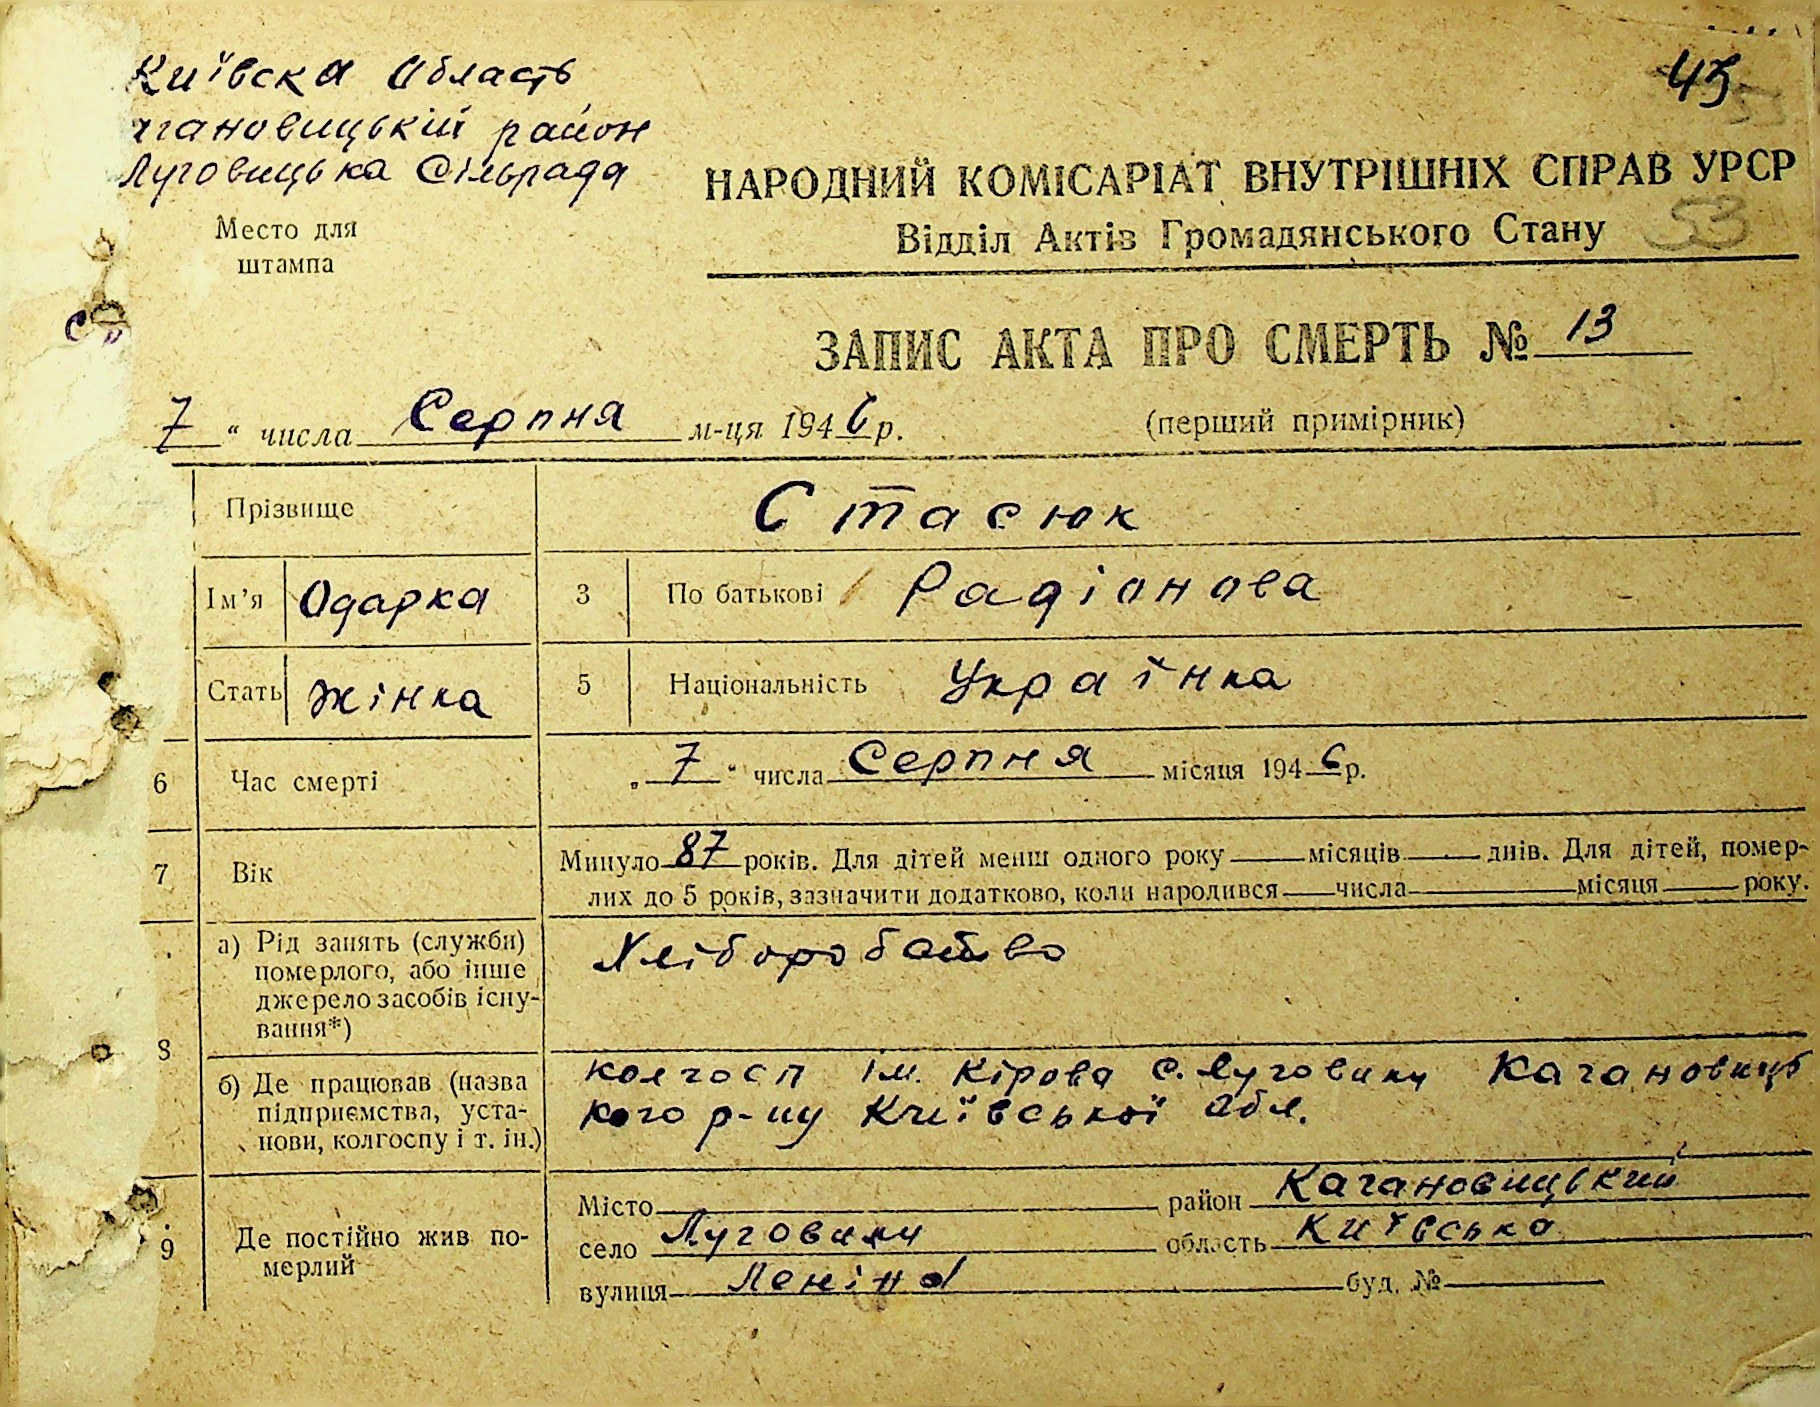 Київска Область
гановицькій район
Луговицька Сільрада
45
Место для
штампа
НАРОДНИЙ КОМІСАРІАТ ВНУТРІШНІХ СПРАВ УРСР
Відділ Актів Громадянського Стану
53
ЗАПИС АКТА ПРО СМЕРТЬ № 13
7 " числа Серпня м-ця 1946 р.
(перший примірник)
Прізвище Стасюк
Ім'я Одарка 3 По батькові Радіонова
Стать жінка 5 Національність Українка
6 Час смерті „ 7 " числа Серпня місяця 1946 р.
7 Вік Минуло 87 років. Для дітей менш одного року місяців днів. Для дітей, помер-
лих до 5 років, зазначити додатково, коли народився числа місяця року.
8
а) Рід занять (служби)
померлого, або інше
джерело засобів існу-
вання*)
Хліборобство
б) Де працював (назва
підприємства, уста-
нови, колгоспу і т. ін.)
колгосп ім. Кірова с. Луговики Кагановиць
кого р-ну Київської обл.
9 Де постійно жив по-
мерлий
Місто район Кагановицький
село Луговики область Київська
вулиця Леніна буд. №